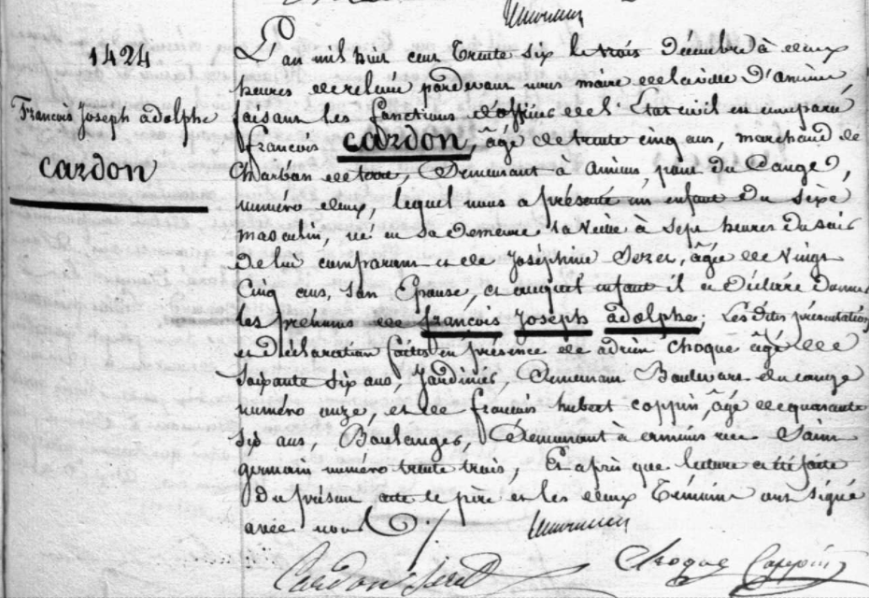 1424
François Joseph adolphe
Cardon
L'an mil huit cent Trente six le trois décembre à deux
heures de relevée pardevant nous maire de la ville d'Amiens
faisant les fonctions d'officier de l'Etat civil en comparu
françois Cardon, âgé de trente cinq ans, marchand de
Charbon de terre, Demeurant à Amiens, pont du Cange,
numéro deux, lequel nous a présenté un enfant du sexe
masculin, né en sa demeure la veille à sept heures du soir
de lui comparant et de Joséphine Sezet, âgée de vingt
Cinq ans, son Epouse, et auquel enfant il a Déclaré donner
les prénoms de françois Joseph adolphe; Les dites présentation
et Déclaration faites en présence de adrien Choque âgé de
Soixante six ans, Jardinier, Demeurant Boulevart du cange
numéro onze, et de françois hubert coppin, âgé de quarante
six ans, Boulanger, Demeurant à amiens rue Saint
germain numéro trente trois, Et après que lecture a été faite
Du présent acte le père et les deux Témoins ont signé
avec nous ./.
Cardon Choque Coppin